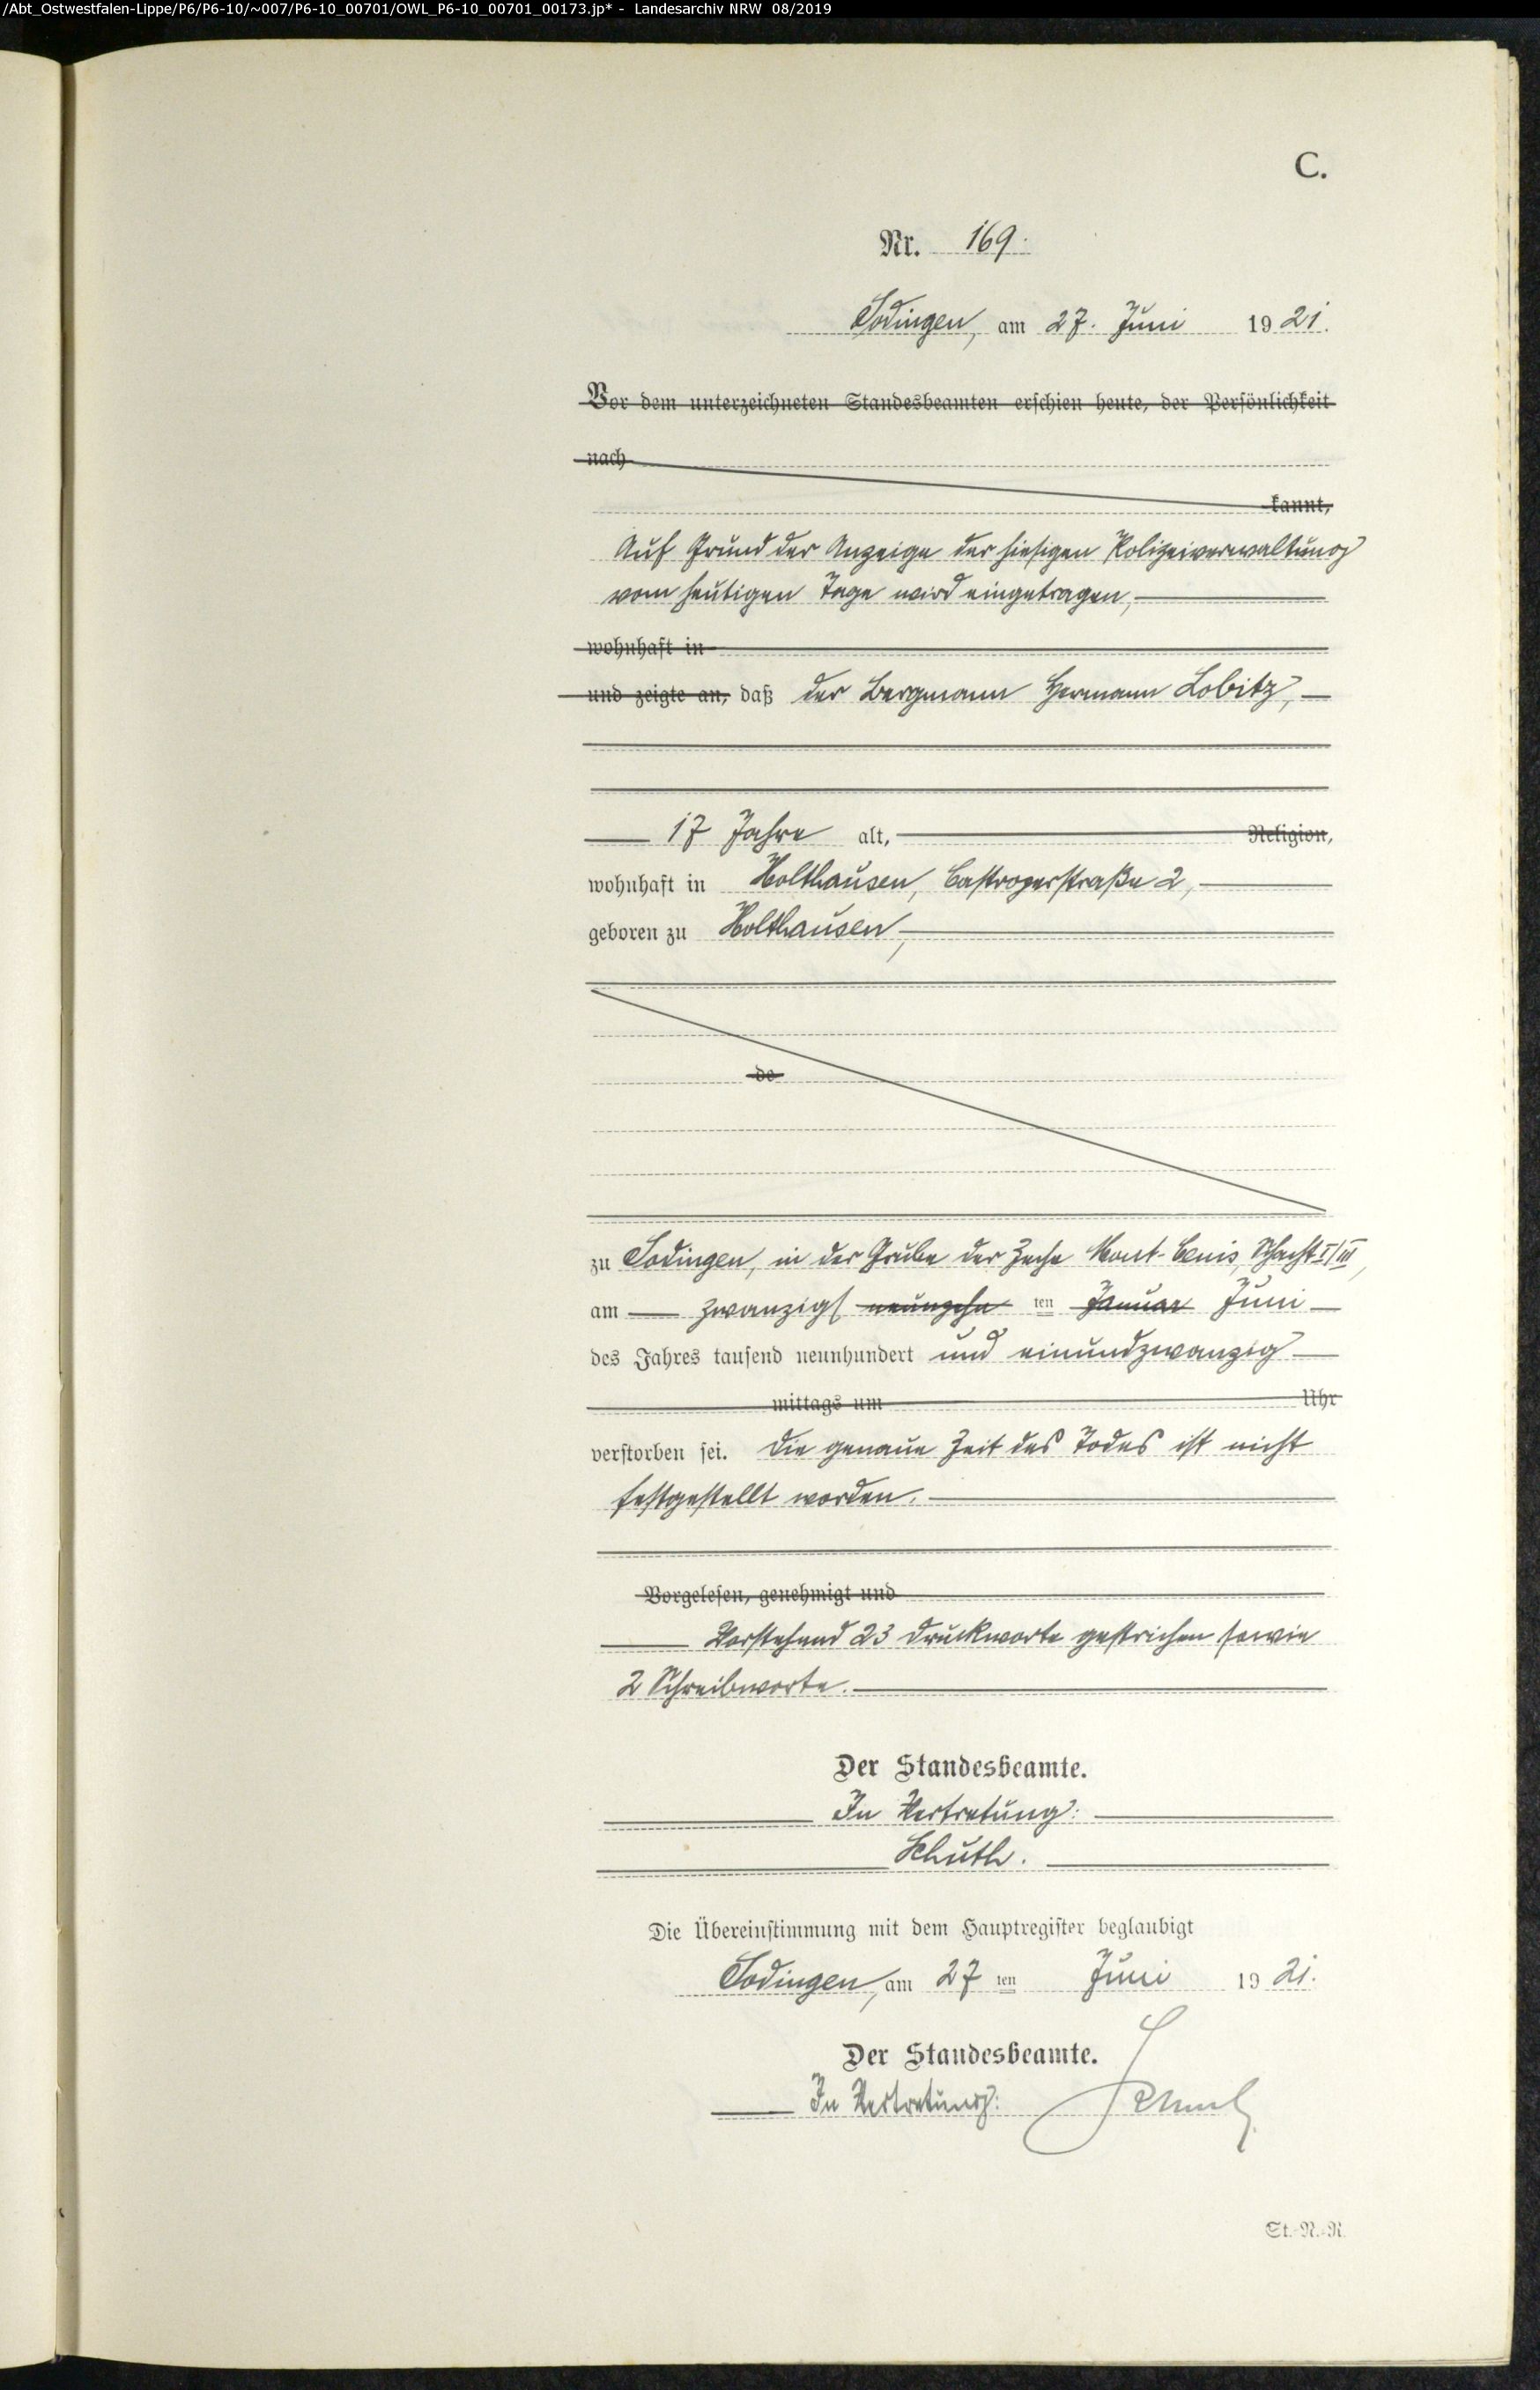 /Abt_Ostwestfalen-Lippe/P6/P6-10/~007/P6-10_00701/OWL_P6-10_00701_00173.jp* - Landesarchiv NRW 08/2019
C.
Nr. 169.
Sodingen, am 27. Juni 1921.
Vor dem unterzeichneten Standesbeamten erschien heute, der Persönlichkeit
nach
kannt,
Auf Grund der Anzeige der hiesigen Polizeiverwaltung
vom heutigen Tage wird eingetragen,
wohnhaft in
und zeigte an, daß der Bergmann Hermann Lobitz,
17 Jahre alt, Religion,
wohnhaft in Holthausen, Castroperstraße 2,
geboren zu Holthausen,
de
zu Sodingen, in der Grube der Zeche Mont-Cenis, Schacht I/III,
am zwanzigs neunzehn ten Januar Juni
des Jahres tausend neunhundert und einundzwanzig
mittags um Uhr
verstorben sei. Die genaue Zeit des Todes ist nicht
festgestellt worden.
Vorgelesen, genehmigt und
Vorstehend 23 Druckworte gestrichen sowie
2 Schreibworte.
Der Standesbeamte.
In Vertretung:
Schuth.
Die Übereinstimmung mit dem Hauptregister beglaubigt
Sodingen, am 27 ten Juni 1921.
Der Standesbeamte.
In Vertretung:
St.-N.-R.